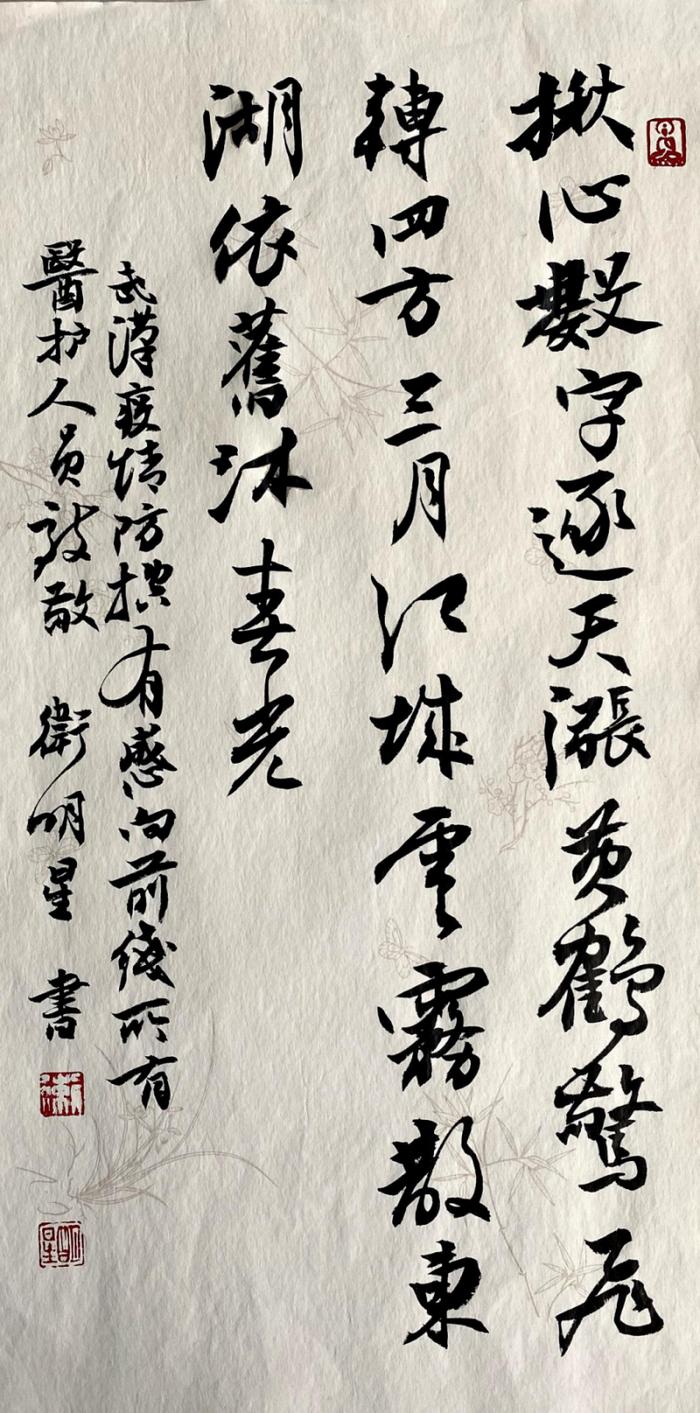 揪心數字逐天漲黄鶴驚飛
轉四方三月江城雲霧散東
湖依舊沐春光
武漢疫情防控有感向前綫所有
醫护人员致敬 衛明星 書
衛
明星